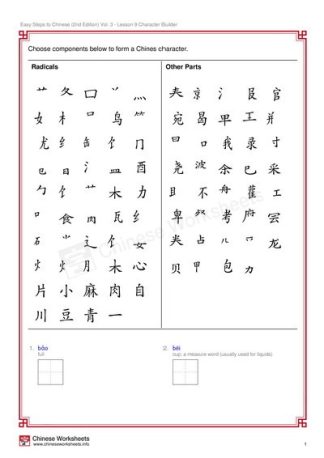 Easy Steps to Chinese (2nd Edition) Vol. 3 - Lesson 9 Character Builder
Choose components below to form a Chines character.
Radicals
Other Parts
艹 夂 口 丷 灬
女 木 口 鸟 ⺮
尤 纟 缶 饣 冂
日 氵 皿 酉
勹 饣 艹 木 力
口 食 肉 瓦 纟
石 宀 辶 饣 女
火 火 月 木 心
片 小 麻 肉 自
川 豆 青 一
夹 京 氵 艮 官
宛 曷 甲 工 并
口 我 录 寸
尧 波 余 巳 采
目 不 舟 雚 工
卑 考 府
占 龙
贝 甲 包 力
1. bǎo
full
2. bēi
cup, a measure word (usually used for liquids)
Chinese Worksheets
Chinese Worksheets
www.chineseworksheets.info
1